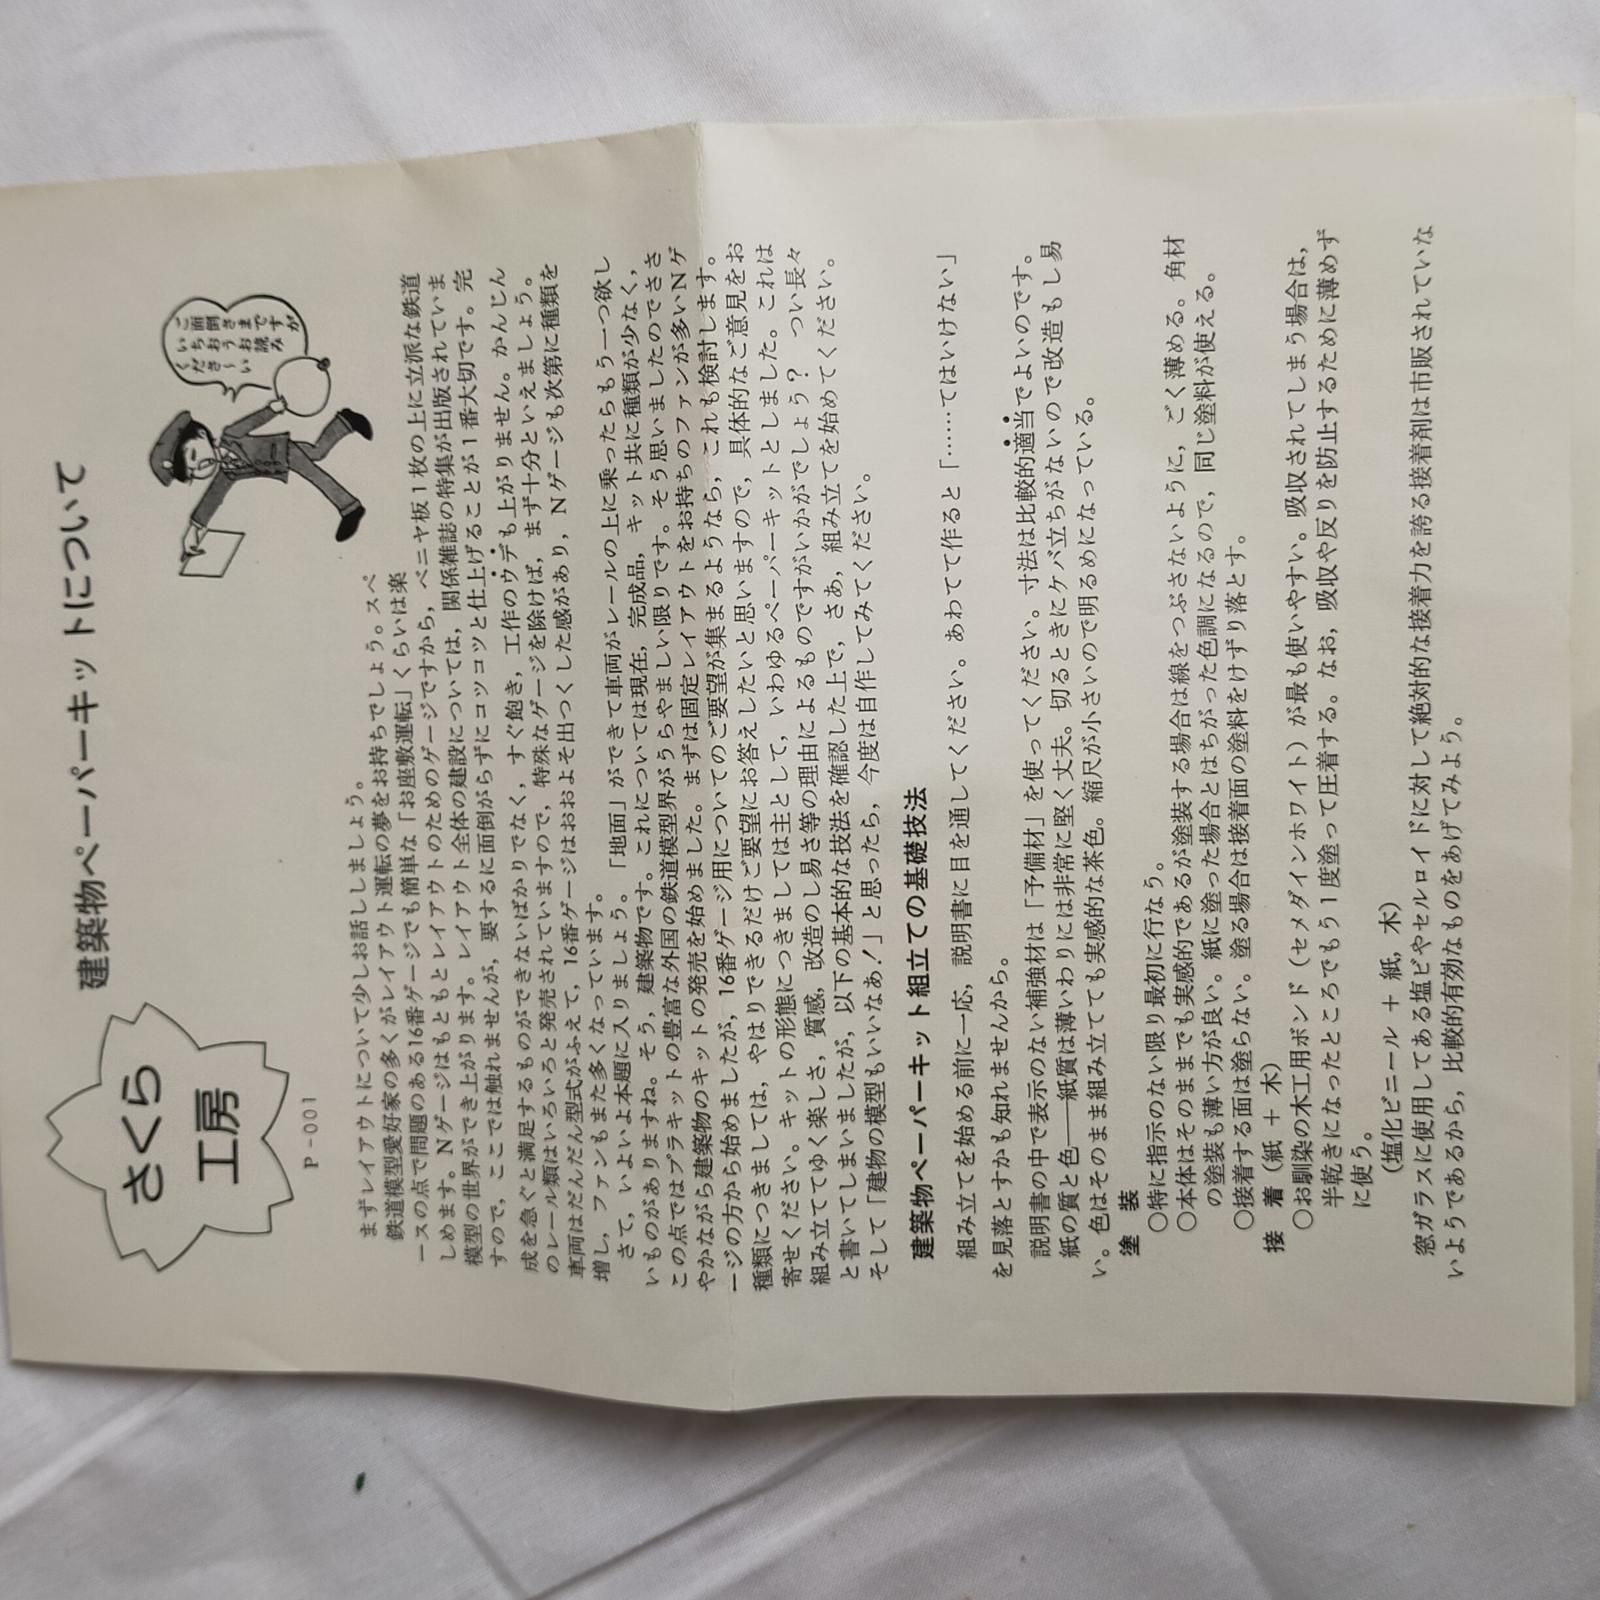 さくら
工房
P-001
建築物ペーパーキットについて
ご面倒さまですが
いちおうお読み
くださ〜い
まずレイアウトについて少しお話ししましょう。
鉄道模型愛好家の多くがレイアウト運転の夢をお持ちでしょう。スペ
ースの点で問題のある16番ゲージでも簡単な「お座敷運転」くらいは楽
しめます。Nゲージはもともとレイアウトのためのゲージですから，ベニヤ板1枚の上に立派な鉄道
模型の世界ができ上がります。レイアウト全体の建設については，関係雑誌の特集が出版されていま
すので，ここでは触れませんが，要するに面倒がらずにコツコツと仕上げることが1番大切です。完
成を急ぐと満足するものができないばかりでなく，すぐ飽き，工作のウデも上がりません。かんじん
のレール類はいろいろと発売されていますので，特殊なゲージを除けば，まず十分といえましょう。
車両はだんだん型式がふえて，16番ゲージはおおよそ出つくした感があり，Nゲージも次第に種類を
増し，ファンもまた多くなっています。
さて，いよいよ本題に入りましょう。「地面」ができて車両がレールの上に乗ったらもう一つ欲し
いものがありますね。そう，建築物です。これについては現在，完成品，キット共に種類が少なく，
この点ではプラキットの豊富な外国の鉄道模型界がうらやましい限りです。そう思いましたのでささ
やかながら建築物のキットの発売を始めました。まずは固定レイアウトをお持ちのファンが多いNゲ
ージの方から始めましたが，16番ゲージ用についてのご要望が集まるようなら，これも検討します。
種類につきましては，やはりできるだけご要望にお答えしたいと思いますので，具体的なご意見をお
寄せください。キットの形態につきましては主として，いわゆるペーパーキットとしました。これは
組み立ててゆく楽しさ，質感，改造のし易さ等の理由によるものですがいかがでしょう？ つい長々
と書いてしまいましたが，以下の基本的な技法を確認した上で，さあ，組み立てを始めてください。
そして「建物の模型もいいなあ！」と思ったら，今度は自作してみてください。
建築物ペーパーキット組立ての基礎技法
組み立てを始める前に一応，説明書に目を通してください。あわてて作ると「……てはいけない」
を見落とすかも知れませんから。
説明書の中で表示のない補強材は「予備材」を使ってください。寸法は比較的適当でよいのです。
紙の質と色──紙質は薄いわりには非常に堅く丈夫。切るときにケバ立ちがないので改造もし易
い。色はそのまま組み立てても実感的な茶色。縮尺が小さいので明るめになっている。
塗 装
○特に指示のない限り最初に行なう。
○本体はそのままでも実感的であるが塗装する場合は線をつぶさないように，ごく薄める。角材
の塗装も薄い方が良い。紙に塗った場合とはちがった色調になるので，同じ塗料が使える。
○接着する面は塗らない。塗る場合は接着面の塗料をけずり落とす。
接 着（紙 ＋ 木）
○お馴染の木工用ボンド（セメダインホワイト）が最も使いやすい。吸収されてしまう場合は，
半乾きになったところでもう1度塗って圧着する。なお，吸収や反りを防止するために薄めず
に使う。
（塩化ビニール ＋ 紙，木）
窓ガラスに使用してある塩ビやセルロイドに対して絶対的な接着力を誇る接着剤は市販されていな
いようであるから，比較的有効なものをあげてみよう。